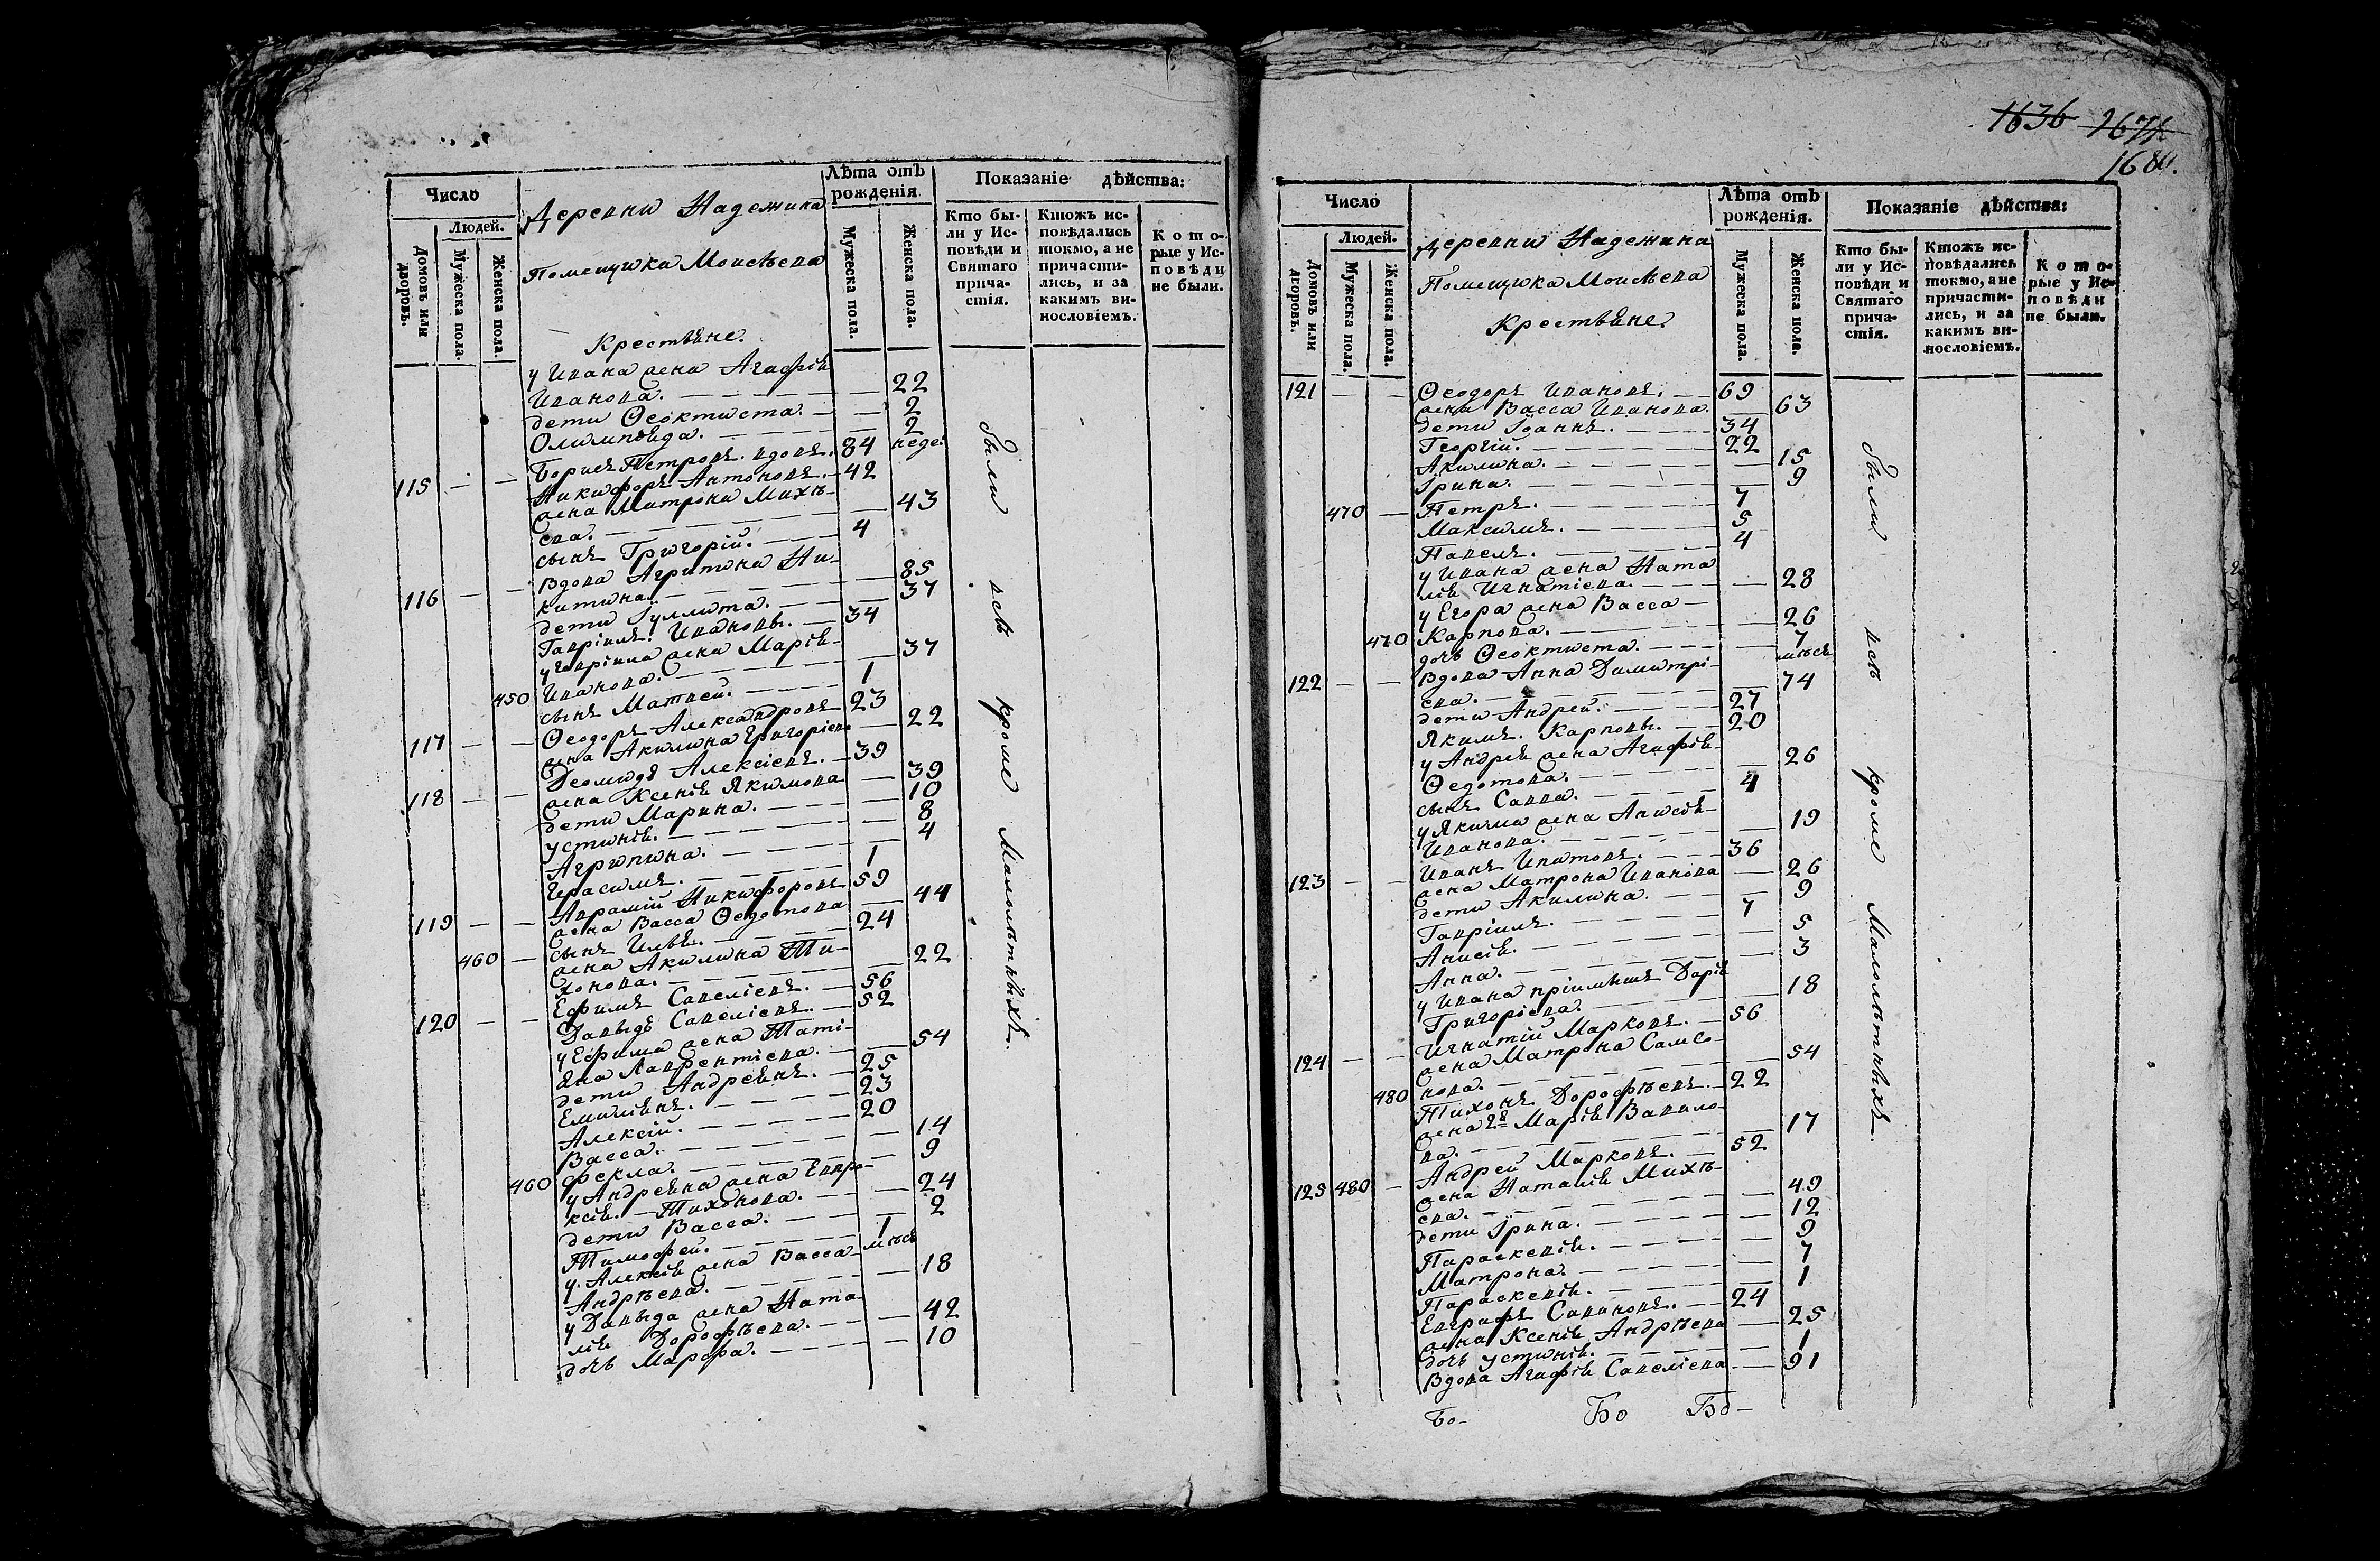 Число
Людей.
Домовъ или дворовъ.
Мужеска пола.
Женска пола.
Деревни Надежина
Помещика Моисѣева
Крестьяне.
Лѣта отъ рожденія.
Мужеска пола.
Женска пола.
Показаніе дѣйства:
Кто бы-
ли у Ис-
повѣди и
Святаго
прича-
стія.
Ктожъ ис-
повѣдались
токмо, а не
причасти-
лись, и за
какимъ ви-
нословіемъ.
Кото-
рые у Ис-
повѣди
не были.
у Ивана жена Агафія
Иванова. 22
дети Ѳеоктиста. 2
Олимпіяда. 2 неде:
Борисъ Петровъ вдовъ. 84
115 Никифоръ Антоновъ. 42
жена Матрона Михѣ-
ева. 43
сынъ Григорій. 4
116 Вдова Агрипина Ни-
китина. 85
дети Іулита. 37
Гавріилъ Ивановы. 34
у Гавріила жена Марія
450 Иванова. 37
сынъ Матвей. 1
117 Ѳеодоръ Александровъ 23
жена Акилина Григоріева 22
118 Деомидъ Алексіевъ. 39
жена Ксенія Якимова 39
дети Марина. 10
Устинія. 8
Агрипина. 4
Герасимъ. 1
119 Аврамій Никифоровъ 59
жена Васса Ѳедотова 44
460 сынъ Илья. 24
жена Акилина Ти-
хонова. 22
120 Ефимъ Савеліевъ. 56
Давыдъ Савеліевъ. 52
у Ефима жена Таті-
яна Лаврентіева. 54
дети Андреянъ. 25
Емиліянъ. 23
Алексій. 20
Васса. 14
460 Фекла. 9
у Андреяна жена Евпра-
ксія Тихонова. 24
дети Васса. 2
Тимофей. 1 мѣся
у Алексія жена Васса
Андрѣева. 18
у Давыда жена Ната-
лія Дорофѣева. 42
дочь Марфа. 10
были всѣ кроме малолѣтныхъ.
1636 1674
1680.
Число
Людей.
Домовъ или дворовъ.
Мужеска пола.
Женска пола.
Деревни Надежина
Помещика Моисѣева
Крестьяне.
Лѣта отъ рожденія.
Мужеска пола.
Женска пола.
Показаніе дѣйства:
Кто бы-
ли у Ис-
повѣди и
Святаго
прича-
стія.
Ктожъ ис-
повѣдались
токмо, а не
причасти-
лись, и за
какимъ ви-
нословіемъ.
Кото-
рые у Ис-
повѣди
не были.
121 Ѳеодоръ Ивановъ. 69
жена Васса Иванова. 63
дети Іоаннъ. 34
Георгій. 22
Акилина. 15
Ірина. 9
470 Петръ. 7
Максимъ. 5
Павелъ. 4
у Ивана жена Ната
лія Игнатіева. 28
у Егора жена Васса
470 Карпова. 26
дочь Ѳеоктиста. 7 мѣся
122 Вдова Анна Димитрі-
ева. 74
дети Андрей. 27
Якимъ Карповы. 20
у Андрея жена Агафія
Ѳедотова. 26
сынъ Савва. 4
у Якима жена Анисія
Иванова. 19
123 Иванъ Ипатовъ. 36
жена Матрона Иванова 26
дети Акилина. 9
Гавріилъ. 7
Анисія. 5
Анна. 3
у Ивана пріимышъ Дарія
Григоріева. 18
124 Игнатій Марковъ. 56
жена Матрона Самсо-
480 нова. 54
Тихонъ Дорофѣевъ. 22
жена 2я Марія Вавило-
ва. 17
125 480 Андрей Марковъ. 52
жена Наталія Михѣ-
ева. 49
дети Ірина. 12
Параскевія. 9
Матрона. 7
Параскевія. 1
Евграфъ Савиновъ. 24
жена Ксенія Андрѣева 25
дочь Устинія. 1
Вдова Агафія Савеліева 91
были всѣ кроме малолѣтныхъ.
Бо- Бо Бо-